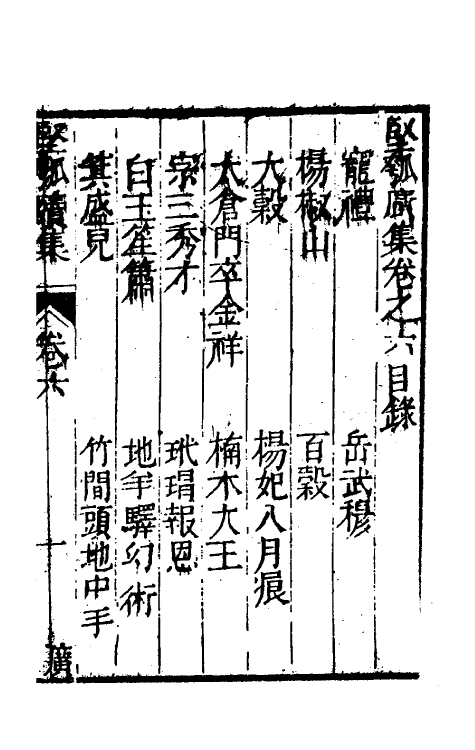 堅瓠廣集卷之六目錄
寵禮　岳武穆
楊椒山　百穀
大穀　楊妃八月痕
太倉門卒金祥　楠木大王
宗三秀才　玳瑁報恩
白玉笙簫　地羊驛幻術
箕盛見　竹間頭地中手
堅瓠續集　卷六　一　廣